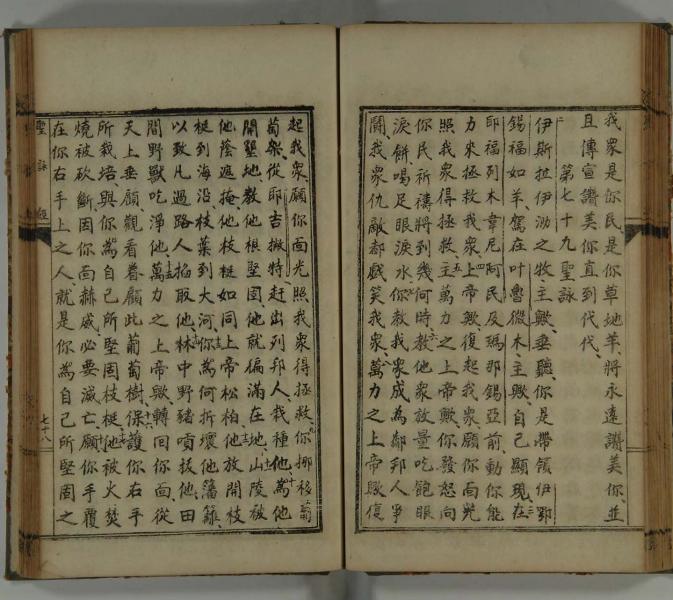 我衆是你民是你草地羊、將永遠讚美你、並
且傳宣讚美你直到代代、
第七十九聖詠
伊斯拉伊泐之牧主歟、垂聽、你是帶領伊鄂
錫福如羊、駕在叶魯微木、主歟、自己顯現、在
耶福列木韋尼阿民及瑪那錫亞前、動你能
力來拯救我衆、上帝歟、復起我衆、願你面光
照我衆得拯救、主萬力之上帝歟、你發怒向
你民祈禱將到幾何時、教他衆放量吃飽眼
淚餅、喝足眼淚水、你教我衆成為鄰邦人爭
鬪、我衆仇敵都戲笑我衆、萬力之上帝歟、復
起我衆、願你面光照我衆得拯救、你挪移葡
萄樹、從耶吉撇特、赶出列邦人、栽種他、為他
開墾地、教他根堅固、他就徧滿在地、山陵被
他蔭遮掩、他枝梃如同上帝松柏、他放開枝
梃到海、沿枝葉到大河、你為何折壞他籓籬、
以致凡過路人掐取他、林中野豬噴拔他、田
間野獸吃淨他、萬力之上帝歟、轉回你面、從
天上垂顧觀看、眷顧此葡萄樹、保護你右手
所栽培、與你為自己所堅固枝梃、他被火焚
燒、被砍斷、因你面赫威必要滅亡、願你手覆
在你右手上之人、就是你為自己所堅固之
聖詠經
七十八